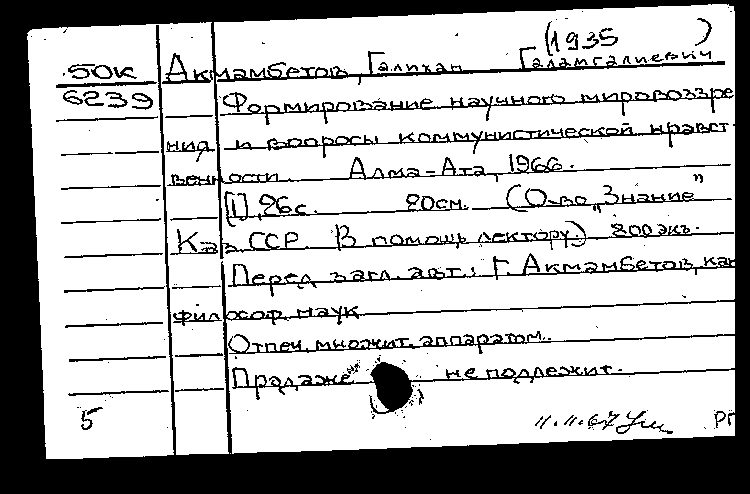 (1935 )
50к Акмамбетов, Галихан Галамгалиевич
6239 Формирование научного мировоззре
ния и вопросы коммунистической нравст
венности. Алма-Ата, 1966.
[1], 26с. 20см. (О-во „Знание"
Каз. ССР. В помощь лектору.) 200 экз.
Перед загл. авт.: Г. Акмамбетов, кан
философ. наук
Отпеч. множит. аппаратом.
Продаже не подлежит.
5 11.11.67 РГ